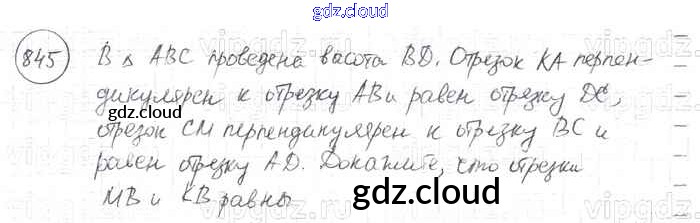 gdz.cloud
845 В △ ABC проведена васота BD. Отрезок KA перпен-
дикулярен к отрезку AB и равен отрезку DC,
gdz.cloud
отрезок CM перпендикулярен к отрезку BC и
равен отрезку AD. Докажите, что отрезки
MB и KB равны
gdz.cloud